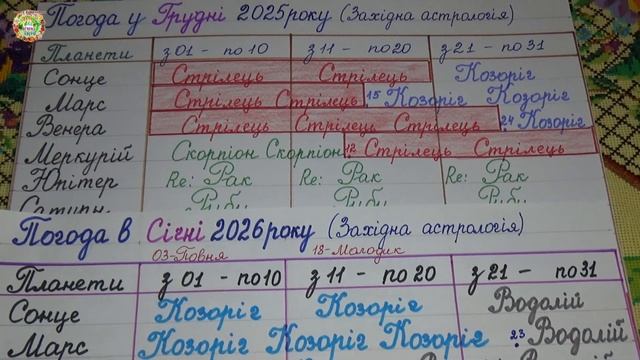 Погода у Грудні 2025року (Західна астрологія)
Планети з 01 - по 10 з 11 - по 20 з 21 - по 31
Сонце Стрілець Стрілець Козоріг
Марс Стрілець Стрілець 15 Козоріг Козоріг
Венера Стрілець Стрілець Стрілець 24 Козоріг
Меркурій Скорпіон Скорпіон 12 Стрілець Стрілець
Юпітер Re: Рак Re: Рак Re: Рак
Погода в Січні 2026року (Західна астрологія)
03-Повня 18-Молодик
Планети з 01 - по 10 з 11 - по 20 з 21 - по 31
Сонце Козоріг Козоріг Водолій
Марс Козоріг Козоріг Козоріг 23 Водолій